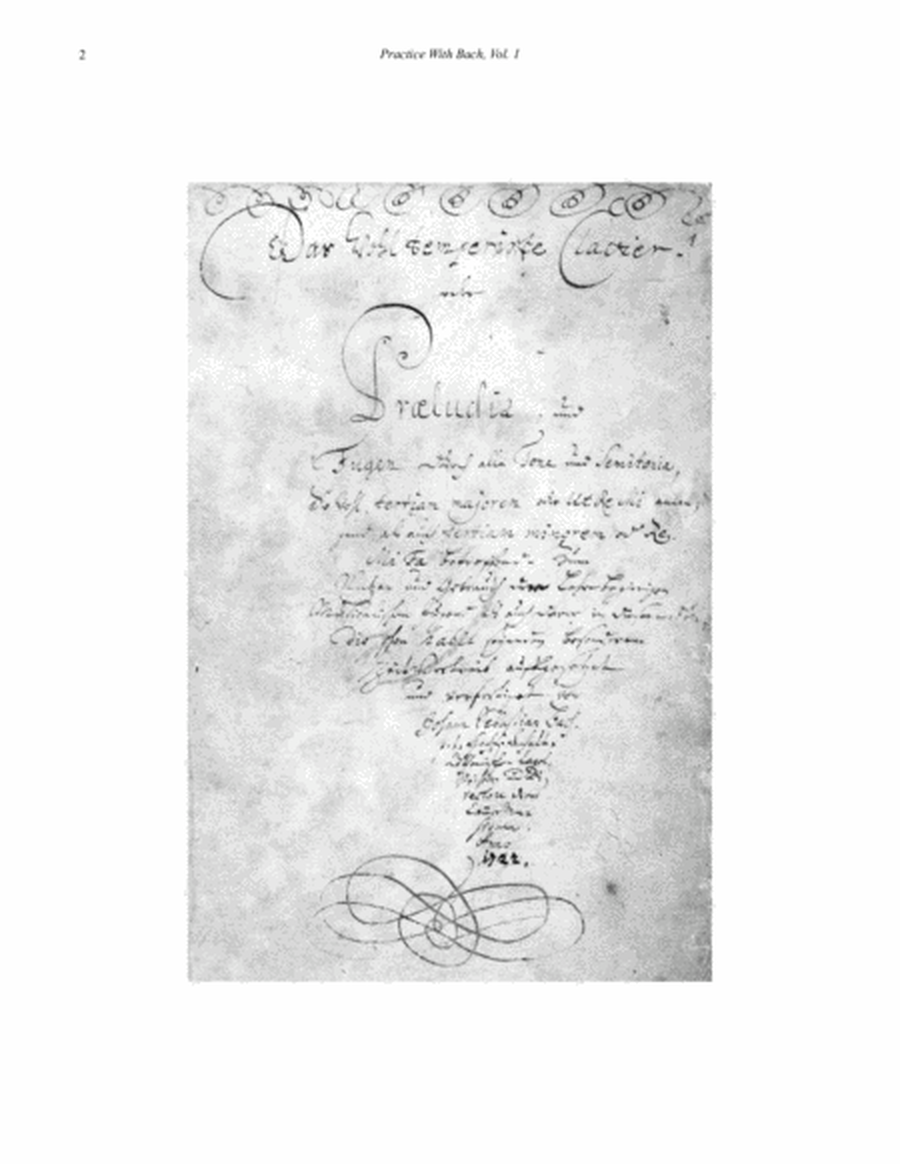 2
Practice With Bach, Vol. 1
Das Wohltemperirte Clavier.
oder
Præludia, und
Fugen durch alle Tone und Semitonia,
So wohl tertiam majorem oder Ut Re Mi anlan-
gend, als auch tertiam minorem oder Re
Mi Fa betreffend. Zum
Nutzen und Gebrauch der Lehrbegierigen
Musicalischen Jugend als auch derer in diesem
studio schon habil seyenden besonderem
Zeit Vertreib auffgesetzet
und verfertiget von
Johann Sebastian Bach.
1722.